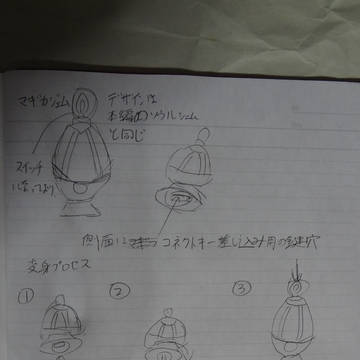 マギカジェム
デザインは
本編のソウルジェム
と同じ
スイッチ
になっており
側面にまぎコネクトキー差し込み用の鍵穴
変身プロセス
① ② ③